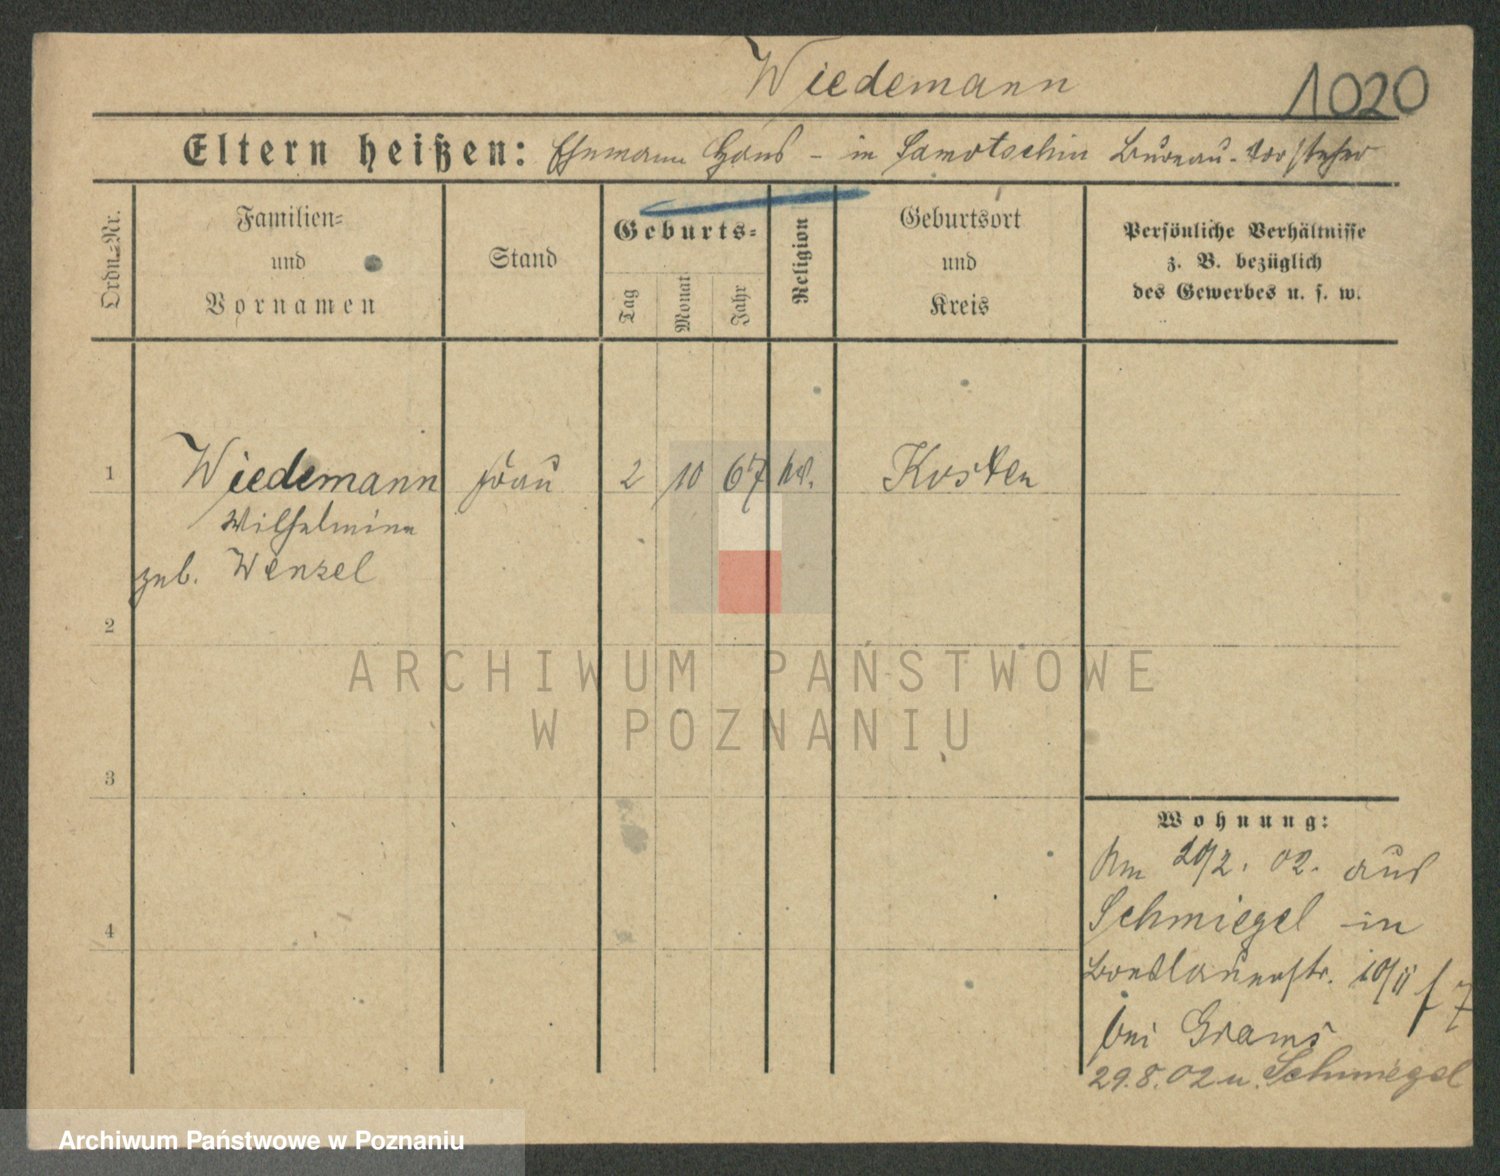 Wiedemann
1020
Eltern heißen: Ehemann Hans - in Samotschin Bureau-Vorsteher
Ordn.-Nr.
Familien-
und
Vornamen
Stand
Geburts-
Tag
Monat
Jahr
Religion
Geburtsort
und
Kreis
Persönliche Verhältnisse
z. B. bezüglich
des Gewerbes u. s. w.
1 Wiedemann Frau 2 10 67 Kosten
Wilhelmine
geb. Wenzel
2
3
4
ARCHIWUM PAŃSTWOWE
W POZNANIU
Wohnung:
Am 20/2. 02. aus
Schmiegel in
Breslauerstr. 10/II
bei Grams
29.8.02 n. Schmiegel
Archiwum Państwowe w Poznaniu